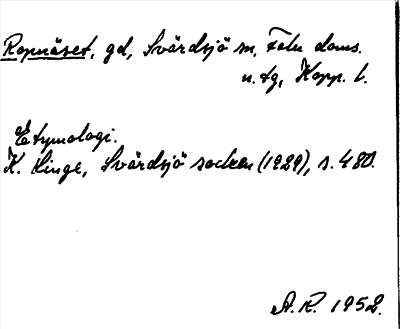 Ropnäset, gd, Svärdsjö sn, Falu doms.
n. tg, Kopp. l.
Etymologi.
K. Linge, Svärdsjö socken (1929), s. 480.
A. R. 1952.